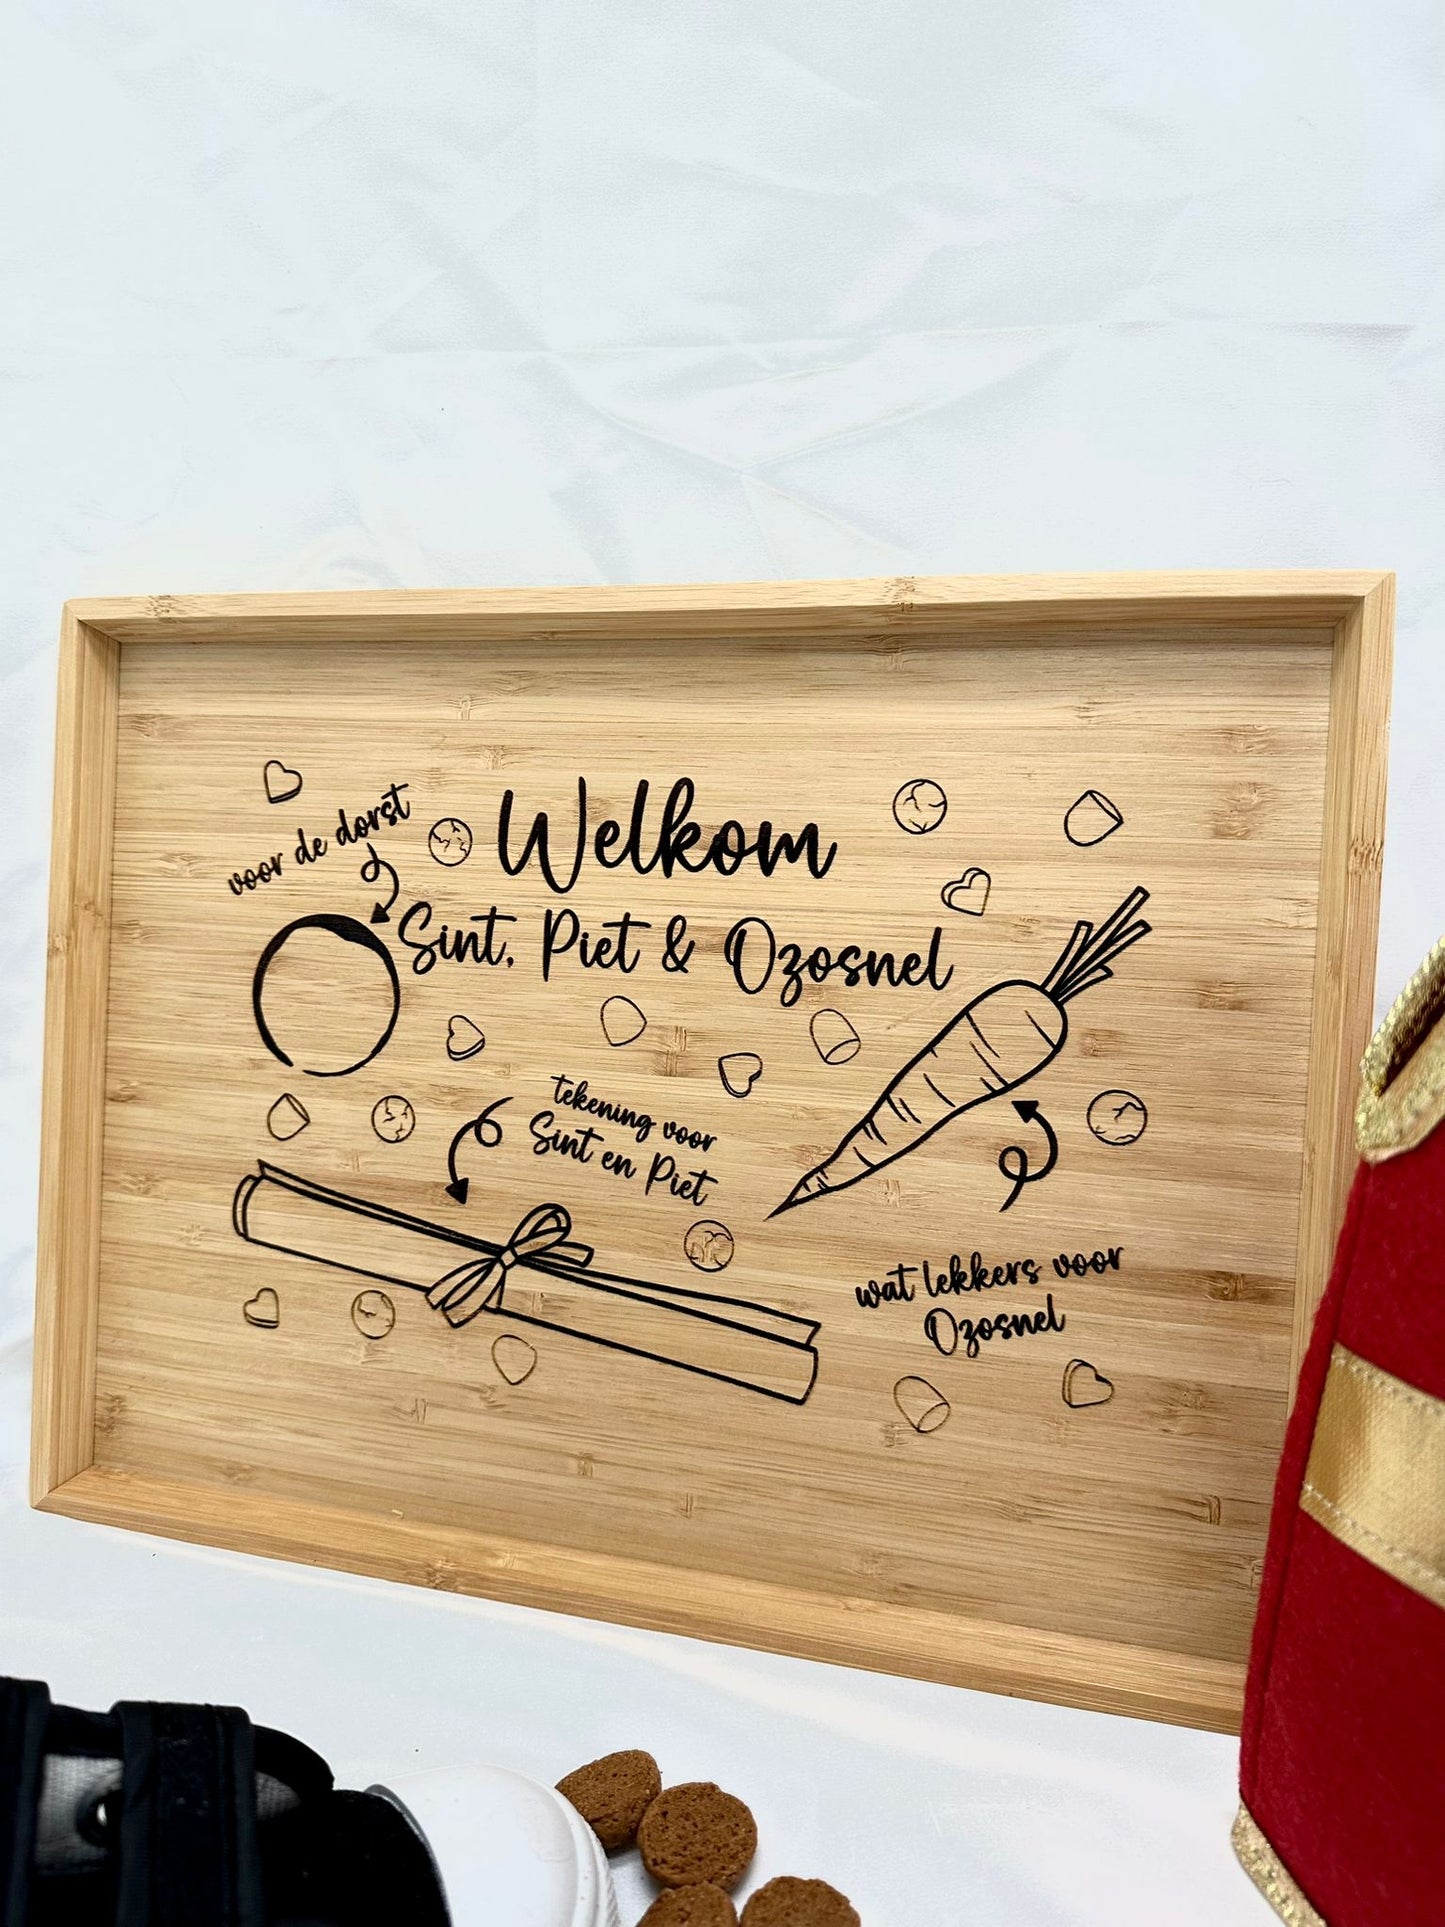 voor de dorst
Welkom
Sint, Piet & Ozosnel
tekening voor
Sint en Piet
wat lekkers voor
Ozosnel